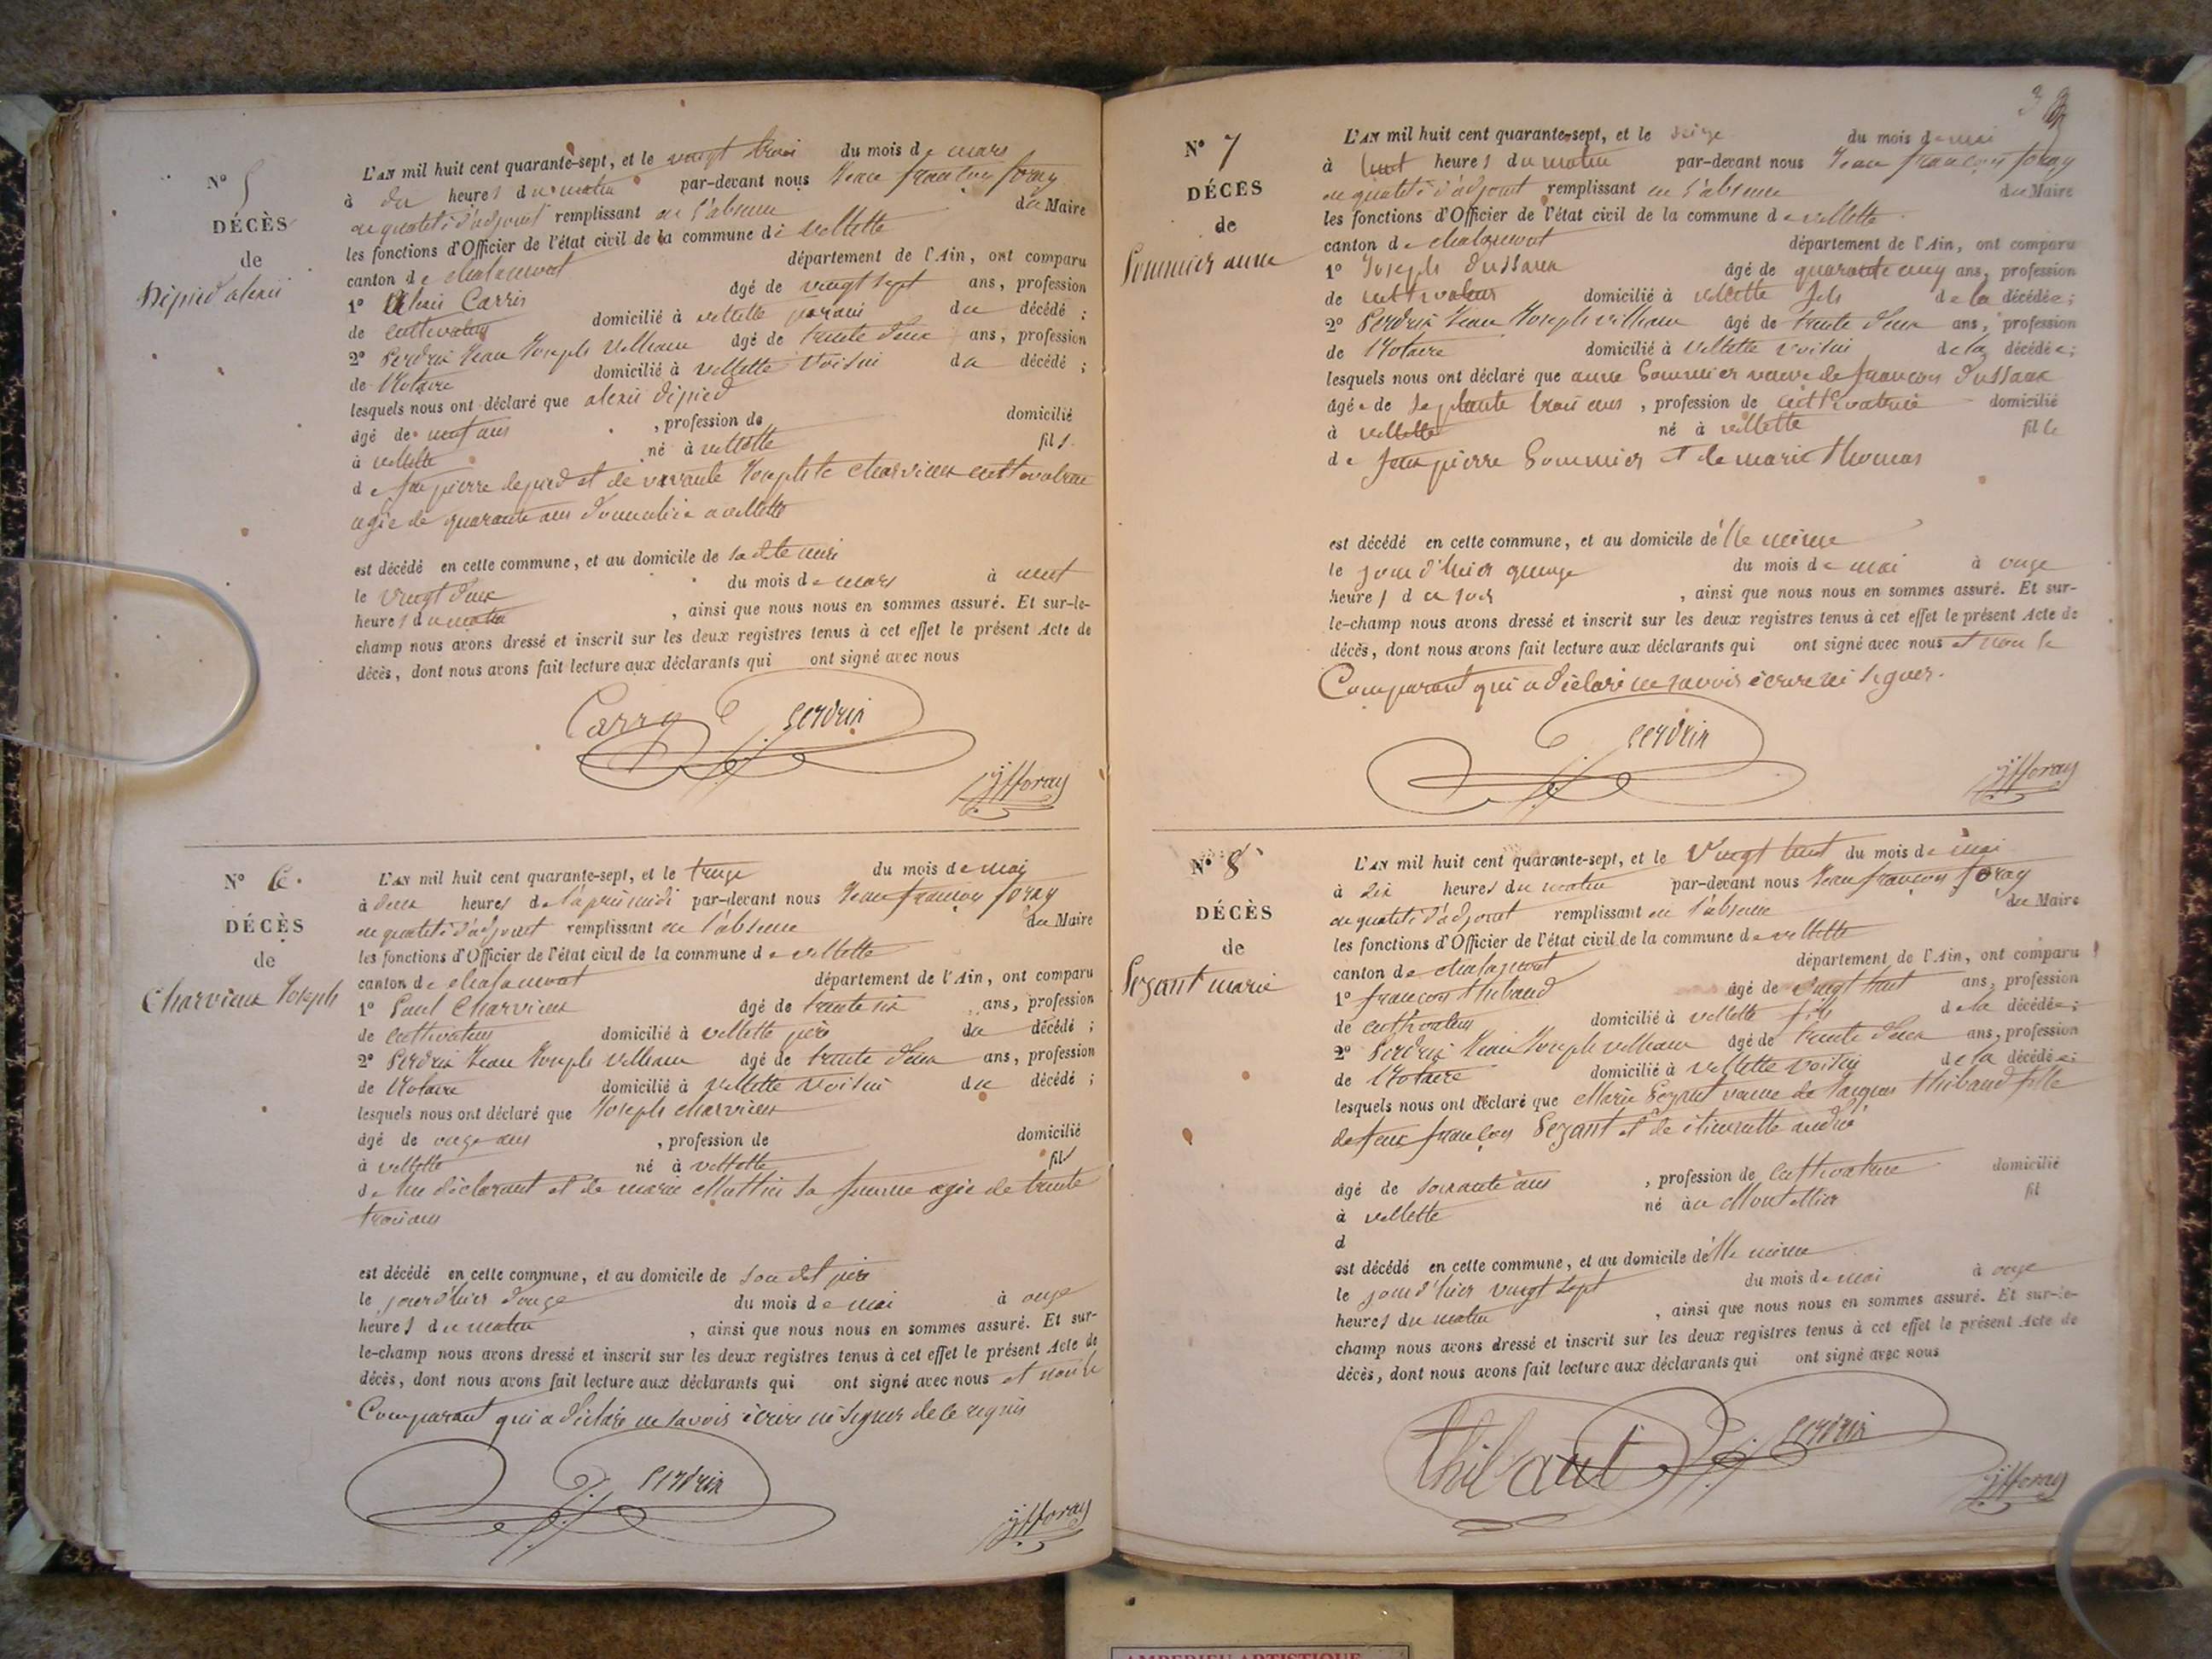 N° 5
DÉCÈS
de
Dépied alexis
L'AN mil huit cent quarante-sept, et le vingt trois du mois de mars
à dix heures du matin par-devant nous Jean françois foray
en qualité d'adjoint remplissant en l'absence du Maire
les fonctions d'Officier de l'état civil de la commune de villette
canton de chalamont département de l'Ain, ont comparu
1° alexis Carris âgé de vingt sept ans, profession
de cultivateur domicilié à villette parain du décédé ;
2° Perdrix Jean Joseph Villiaume âgé de trente deux ans, profession
de Notaire domicilié à villette voisin du décédé ;
lesquels nous ont déclaré que alexis dépied
âgé de neuf ans , profession de domicilié
à villette né à villette fils
de feu pierre depied et de vivante Josephte charvieux cultivatrice
agée de quarante ans domiciliée a villette
est décédé en cette commune, et au domicile de sa dite mère
le vingt deux du mois de mars à neuf
heures du matin , ainsi que nous nous en sommes assuré. Et sur-le-
champ nous avons dressé et inscrit sur les deux registres tenus à cet effet le présent Acte de
décès, dont nous avons fait lecture aux déclarants qui ont signé avec nous
Carry Perdrix
jffforay
N° 6.
DÉCÈS
de
Charvieux Joseph
L'AN mil huit cent quarante-sept, et le treize du mois de mai
à deux heures de l'après midi par-devant nous Jean françois foray
en qualité d'adjoint remplissant en l'absence du Maire
les fonctions d'Officier de l'état civil de la commune de villette
canton de chalamont département de l'Ain, ont comparu
1° Paul Charvieux âgé de trente six ans, profession
de cultivateur domicilié à villette père du décédé ;
2° Perdrix Jean Joseph Villiaume âgé de trente deux ans, profession
de Notaire domicilié à villette voisin du décédé ;
lesquels nous ont déclaré que Joseph charvieux
âgé de onze ans , profession de domicilié
à villette né à villette fils
de du déclarant et de marie Mathieu sa femme agée de trente
trois ans
est décédé en cette commune, et au domicile de son dit père
le jour d'hier douze du mois de mai à onze
heures du matin , ainsi que nous nous en sommes assuré. Et sur-
le-champ nous avons dressé et inscrit sur les deux registres tenus à cet effet le présent Acte de
décès, dont nous avons fait lecture aux déclarants qui ont signé avec nous et non le
Comparant qui a déclaré ne savoir écrire ni signer de ce requis
Perdrix
jffforay
N° 7
DÉCÈS
de
Sommier anne
L'AN mil huit cent quarante-sept, et le seize du mois de mai
à huit heures du matin par-devant nous Jean françois foray
en qualité d'adjoint remplissant en l'absence du Maire
les fonctions d'Officier de l'état civil de la commune de villette
canton de chalamont département de l'Ain, ont comparu
1° Joseph Dussaux âgé de quarante cinq ans, profession
de cultivateur domicilié à villette fils de la décédée ;
2° Perdrix Jean Joseph villiaume âgé de trente deux ans, profession
de Notaire domicilié à villette voisin de la décédée ;
lesquels nous ont déclaré que anne Sommier veuve de françois dussaux
âgée de septante trois ans , profession de cultivatrice domicilié
à villette né à villette fille
de Jean pierre Sommier et de marie Thomas
est décédé en cette commune, et au domicile d'elle même
le jour d'hier quinze du mois de mai à onze
heures du soir , ainsi que nous nous en sommes assuré. Et sur-
le-champ nous avons dressé et inscrit sur les deux registres tenus à cet effet le présent Acte de
décès, dont nous avons fait lecture aux déclarants qui ont signé avec nous et non le
Comparant qui a déclaré ne savoir écrire ni signer.
Perdrix
jffforay
N° 8
DÉCÈS
de
Pezant marie
L'AN mil huit cent quarante-sept, et le Vingt huit du mois de mai
à dix heures du matin par-devant nous Jean françois foray
en qualité d'adjoint remplissant en l'absence du Maire
les fonctions d'Officier de l'état civil de la commune de villette
canton de chalamont département de l'Ain, ont comparu
1° françois thibaud âgé de vingt huit ans, profession
de cultivateur domicilié à villette fils de la décédée ;
2° Perdrix Jean Joseph villiaume âgé de trente deux ans, profession
de Notaire domicilié à villette voisin de la décédée ;
lesquels nous ont déclaré que Marie Pezant veuve de Jacques thibaud fille
de feux françois Pezant et de etiennette andré
âgé de soixante ans , profession de cultivatrice domicilié
à villette né à au Montellier fil
d
est décédé en cette commune, et au domicile d'elle même
le jour d'hier vingt sept du mois de mai à onze
heures du matin , ainsi que nous nous en sommes assuré. Et sur-le-
champ nous avons dressé et inscrit sur les deux registres tenus à cet effet le présent Acte de
décès, dont nous avons fait lecture aux déclarants qui ont signé avec nous
Thibaut Perdrix
jffforay
AMBERIEU ARTISTIQUE